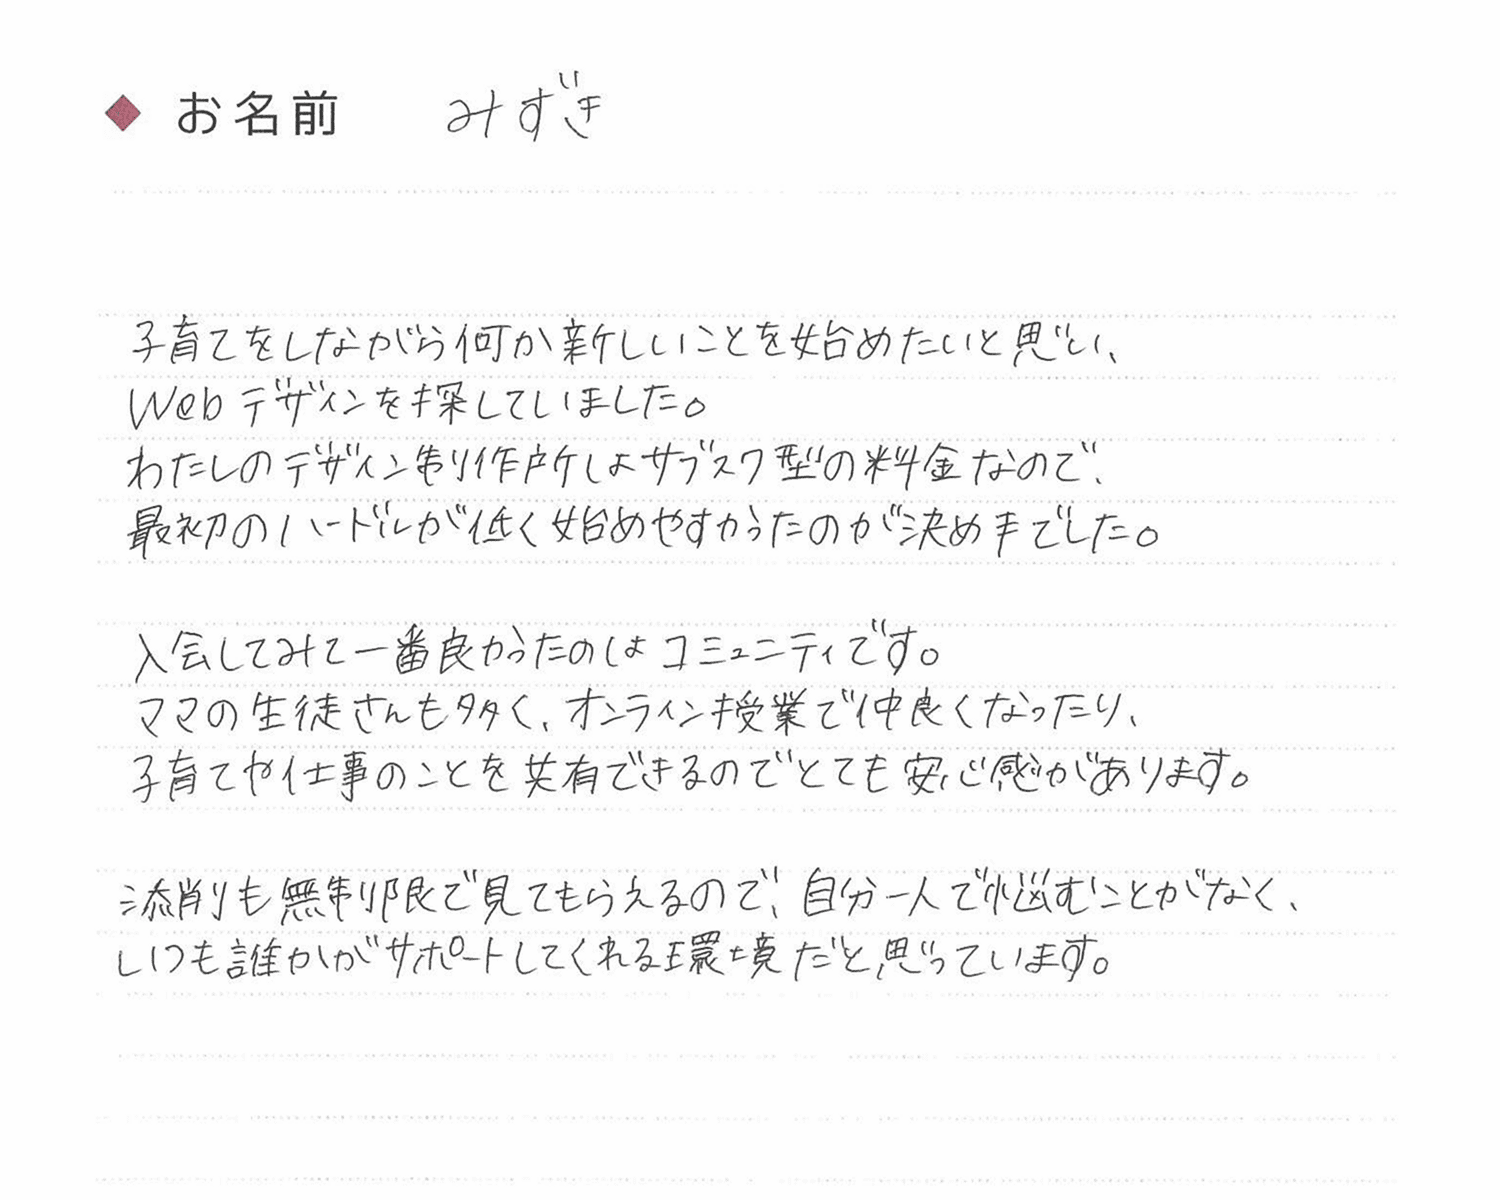 ◆ お名前 みずき
子育てをしながら何か新しいことを始めたいと思い、
Webデザインを探していました。
わたしのデザイン制作所はサブスク型の料金なので、
最初のハードルが低く始めやすかったのが決め手でした。
入会してみて一番良かったのはコミュニティです。
ママの生徒さんも多く、オンライン授業で仲良くなったり、
子育てや仕事のことを共有できるのでとても安心感があります。
添削も無制限で見てもらえるので、自分一人で悩むことがなく、
いつも誰かがサポートしてくれる環境だと思っています。